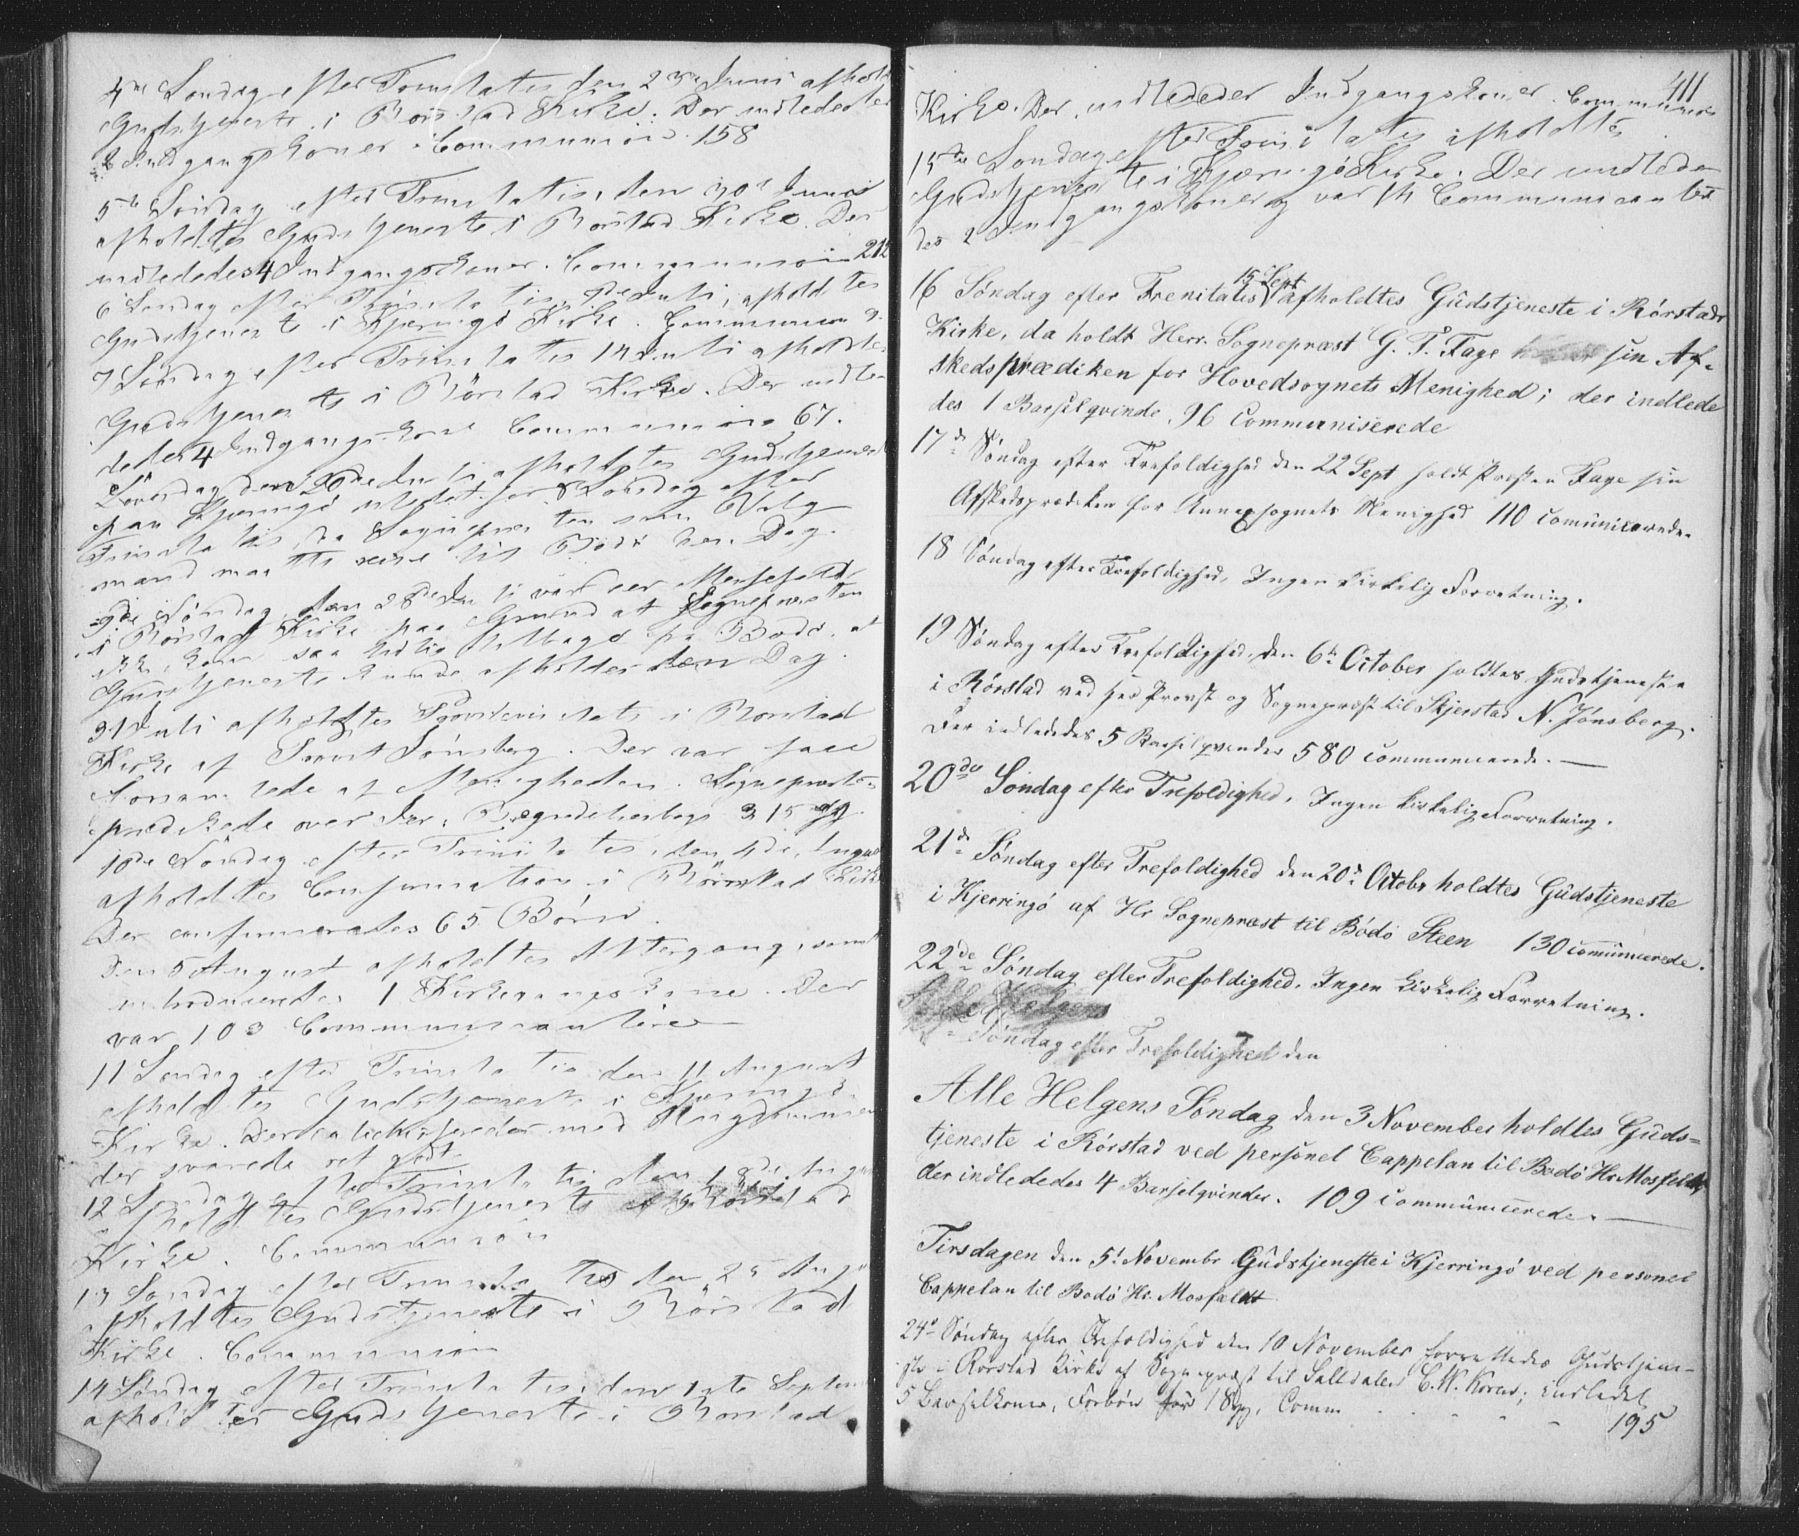 4de Søndag efter Trinitatis den 23de Juni afholdt
Gudstjeneste i Rørstad Kirke. Der indledetes
Indgangskoner. Communion 158
5te Søndag efter Trinitatis, den 30te Juni
afholdtes Gudstjeneste i Rørstad Kirke. Der
indlededes 4 Indgangskoner. Communion 212
6 Søndag efter Trinitatis, Juli, afholdtes
Gudstjeneste i Kjæringø Kirke. Communion
7 Søndag efter Trinitatis 14 Juli afholdtes
Gudstjeneste i Rørstad Kirke. Der indle-
dedes 4 Indgangskone Communion 67.
Løverdag den 20de Juli afholdtes Gudstjeneste
paa Kjæringø istedet for 8 Søndag efter
Trinitatis, da Sognepræsten som Valg
mand maatte reise til Bodø den Dag.
9de Søndag, den 28de Juli var der Messefald
i Rørstad Kirke paa Grund at Sognepræsten
ikke kom saa tidlig tilbage fra Bodø, at
Gudstjeneste kunde afholdes den Dag.
31 Juli afholdtes Provstevisitats i Rørstad
Kirke af Provst Jønsberg. Der var faae
Forsamlede af Menigheden. Sognepræsten
prædikede over Joh. Aabenbaring 3 15
10de Søndag efter Trinitatis, den 4de August
afholdtes Confirmation i Rørstad Kirke
Der confirmeredes 65 Børn.
Den 5 August afholdtes Altergang, samt
introduceredes 1 Kirkegangskone. Der
var 103 Communicantere
11 Søndag efter Trinitatis den 11 August
afholdtes Gudstjeneste i Kjæringø
Kirke. Der catechiseredes med Ungdommen
der svarede ret godt
12 Søndag efter Trinitatis den 18de August
afholdtes Gudstjeneste i Rørstad
Kirke. Communion
13 Søndag efter Trinitatis den 25 August
afholdtes Gudstjeneste i Rørstad
Kirke. Communion
14 Søndag efter Trinitatis, den 1ste September
afholdtes Gudstjeneste i Rørstad
411
Kirke. Der indlededes Indgangskoner. Communion
15de Søndag efter Trinitatis afholdtes
Gudstjeneste i Kjæringø Kirke. Der indlede-
des 2 Indgangskoner og var 14 Communicanter
16 Søndag efter Trenitatis 15 Sept afholdtes Gudstjeneste i Rørstads
Kirke, da holdt Herr. Sognepræst G. T. Fage sin Af-
skedsprædiken for Hovedsognets Menighed; der indlede
des 1 Barselqvinde, 96 Communiserede
17de Søndag efter Trefoldighed den 22 Sept holdt Præsten Fage sin
Afskedsprædiken for Annexsognets Menighed 110 comunicerede.
18 Søndag efter Trefoldighed, Ingen kirkelig Forretning.
19 Søndag efter Trefoldighed, den 6te October holdtes Gudstjeneste
i Rørstad ved Her Provst og Sognepræst til Skjerstad N. Jønsberg.
Der indlededes 5 Barselqvinder 580 communicerede.
20de Søndag efter Trefoldighed, Ingen kirkelig Forretning.
21de Søndag efter Trefoldighed den 20de Octobr holdtes Gudstjeneste
i Kjerringø af Hr Sognepræst til Bodø Steen 130 comunicerede.
22de Søndag efter Trefoldighed. Ingen kirkelig Forretning.
Alle Helgens
Søndag efter Trefoldighed den
Alle Helgens Søndag den 3 November holdtes Guds=
tjeneste i Rørstad ved personel Cappelan til Bodø Hr Mosfeldt
der indlededes 4 Barselqvinder. 109 communicerede.
Tirsdagen den 5t Novembr Gudstjeneste i Kjerringø ved personel
Cappelan til Bodø Hr. Mosfeldt
24de Søndag efter Trefoldighed den 10 November forrettedes Gudstjene-
ste i Rørstad Kirke af Sognepræst til Saltdalen C. W. Koren; indledet
5 Barselkoner, Forbøn for 18, Comm . . . . . 195